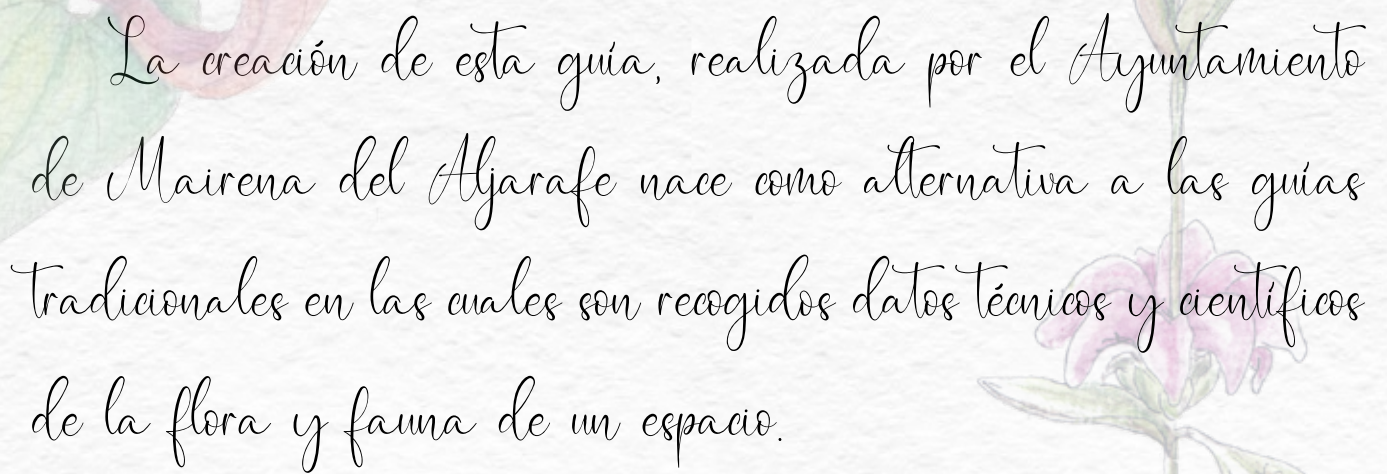 La creación de esta guía, realizada por el Ayuntamiento
de Mairena del Aljarafe nace como alternativa a las guías
tradicionales en las cuales son recogidos datos técnicos y científicos
de la flora y fauna de un espacio.